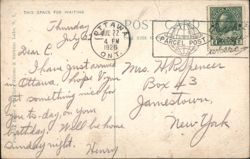 THIS SPACE FOR WRITING
POST CARD
OTTAWA
4 PM
1926
ONT.
PARCEL POST
Thursday
July 22
Dear C.
I have just arrived
in Ottawa. hope you
got something nice for
you to-day, on your
birthday. Will be home
Sunday night.
Henry
Mrs. H. P. Spencer
Box 43
Jamestown,
New York